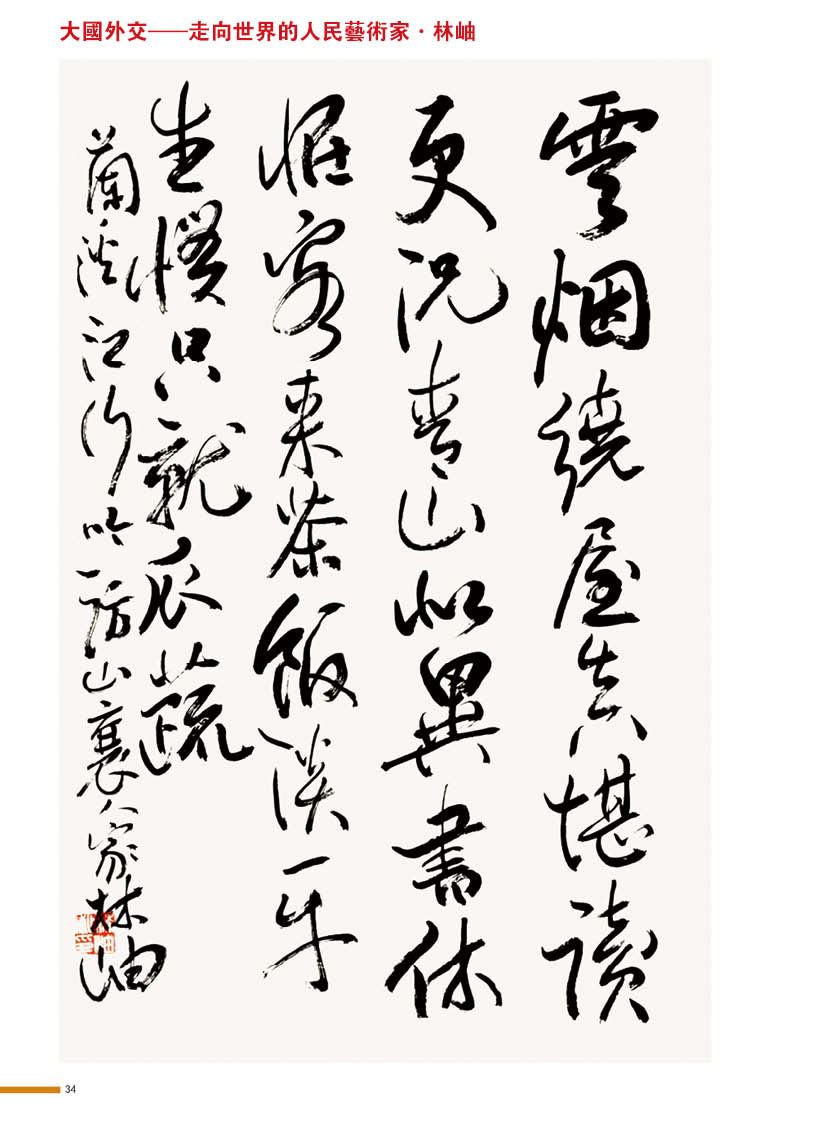 大國外交——走向世界的人民藝術家·林岫
雲烟繞屋真堪讀
更況青山似異書休
怪客來茶飯淡一年
生慣只就瓜蔬
蘭溪江行吟 訪山裏人家 林岫
34